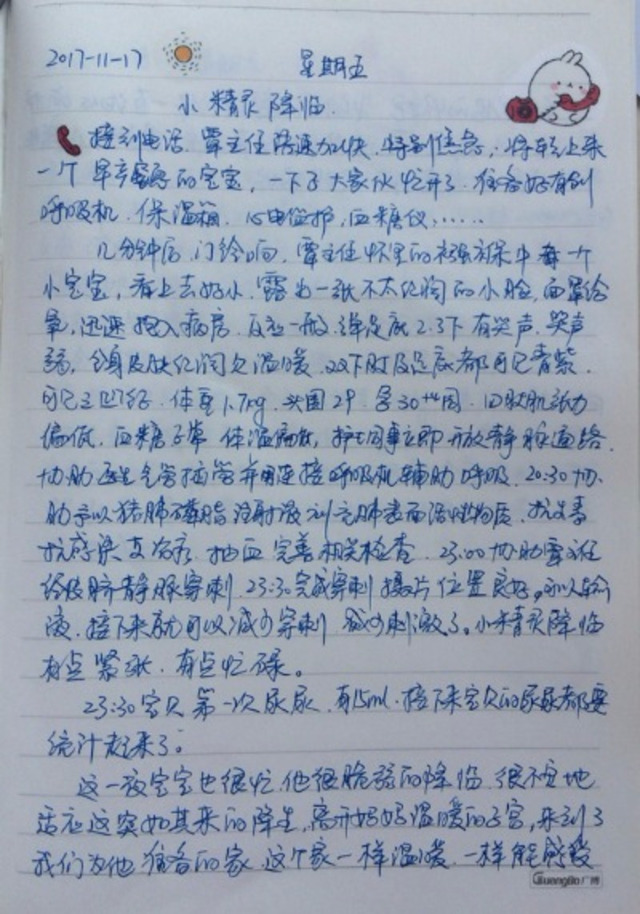 2017-11-17 星期五
小精灵降临
接到电话,覃主任语速加快,特别焦急,将转上来
一个早产的宝宝,一下子大家伙忙开了,准备好有创
呼吸机、保温箱、心电监护、血糖仪……
几分钟后,门铃响,覃主任怀里的襁褓中有一个
小宝宝,看上去好小,露出一张不太红润的小脸,面罩给
氧,迅速抱入病房,反应一般,弹足底2.3下有哭声,哭声
弱,全身皮肤红润欠温暖,双下肢及足底都可见青紫,
可见三凹征,体重1.7kg,头围29,孕30+4周,四肢肌张力
偏低,血糖正常,体温偏低,护士同事立即开放静脉通路,
协助医生气管插管并用连接呼吸机辅助呼吸,20:30协
助予以猪肺磷脂注射液补充肺表面活性物质,
抗感染治疗,抽血完善相关检查,23:00协助覃主任
经皮脐静脉穿刺,23:30完成穿刺,摄片位置良好,可以输
液,接下来就可以减少穿刺,减少刺激了。小精灵降临
有点紧张,有点忙碌。
23:30宝贝第一次尿尿,有15ml,接下来宝贝的尿尿都要
统计起来了。
这一夜宝宝也很忙,他很脆弱的降临,很不安地
适应这突如其来的降生,离开妈妈温暖的子宫,来到了
我们为他准备的家,这个家一样温暖,一样能感受
GuangBo广博